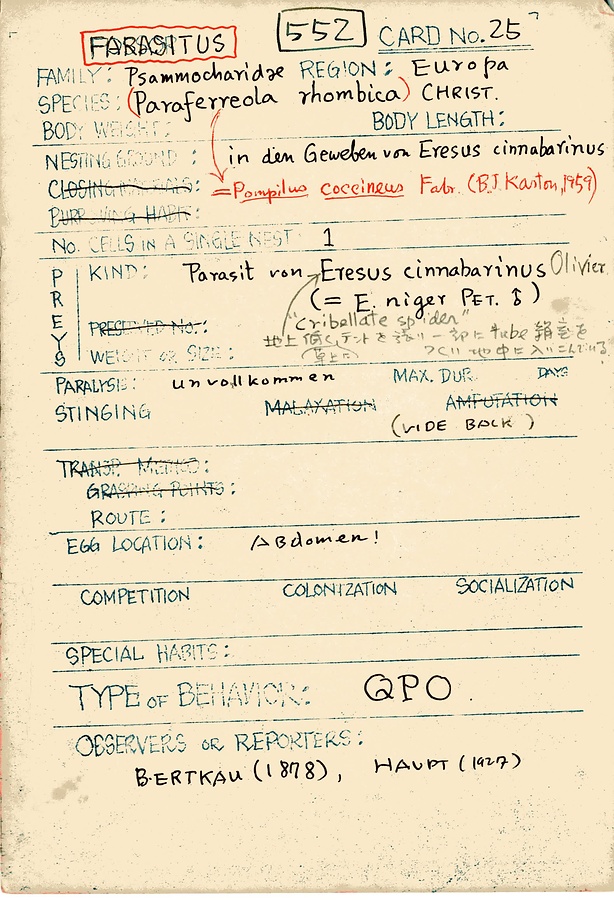 PARASITUS 552 CARD No. 25
FAMILY: Psammocharidae REGION: Europa
SPECIES: (Paraferreola rhombica) CHRIST.
BODY WEIGHT: BODY LENGTH:
NESTING GROUND: in den Geweben von Eresus cinnabarinus
CLOSING MATERIALS: =Pompilus coccineus Fabr. (B.J. Kaston, 1959)
BURROWING HABIT:
No. CELLS IN A SINGLE NEST: 1
PREYS
KIND: Parasit von Eresus cinnabarinus Olivier
(= E. niger PET. ♂)
"Cribellate spider"
PRESERVED No.:
WEIGHT OR SIZE:
PARALYSIS: unvollkommen MAX. DUR. DAYS
STINGING MALAXATION AMPUTATION
(VIDE BACK)
TRANSP. METHOD:
GRASPING POINTS:
ROUTE:
EGG LOCATION: Abdomen!
COMPETITION COLONIZATION SOCIALIZATION
SPECIAL HABITS:
TYPE OF BEHAVIOR: QPO.
OBSERVERS OR REPORTERS:
BERTKAU (1878), HAUPT (1927)